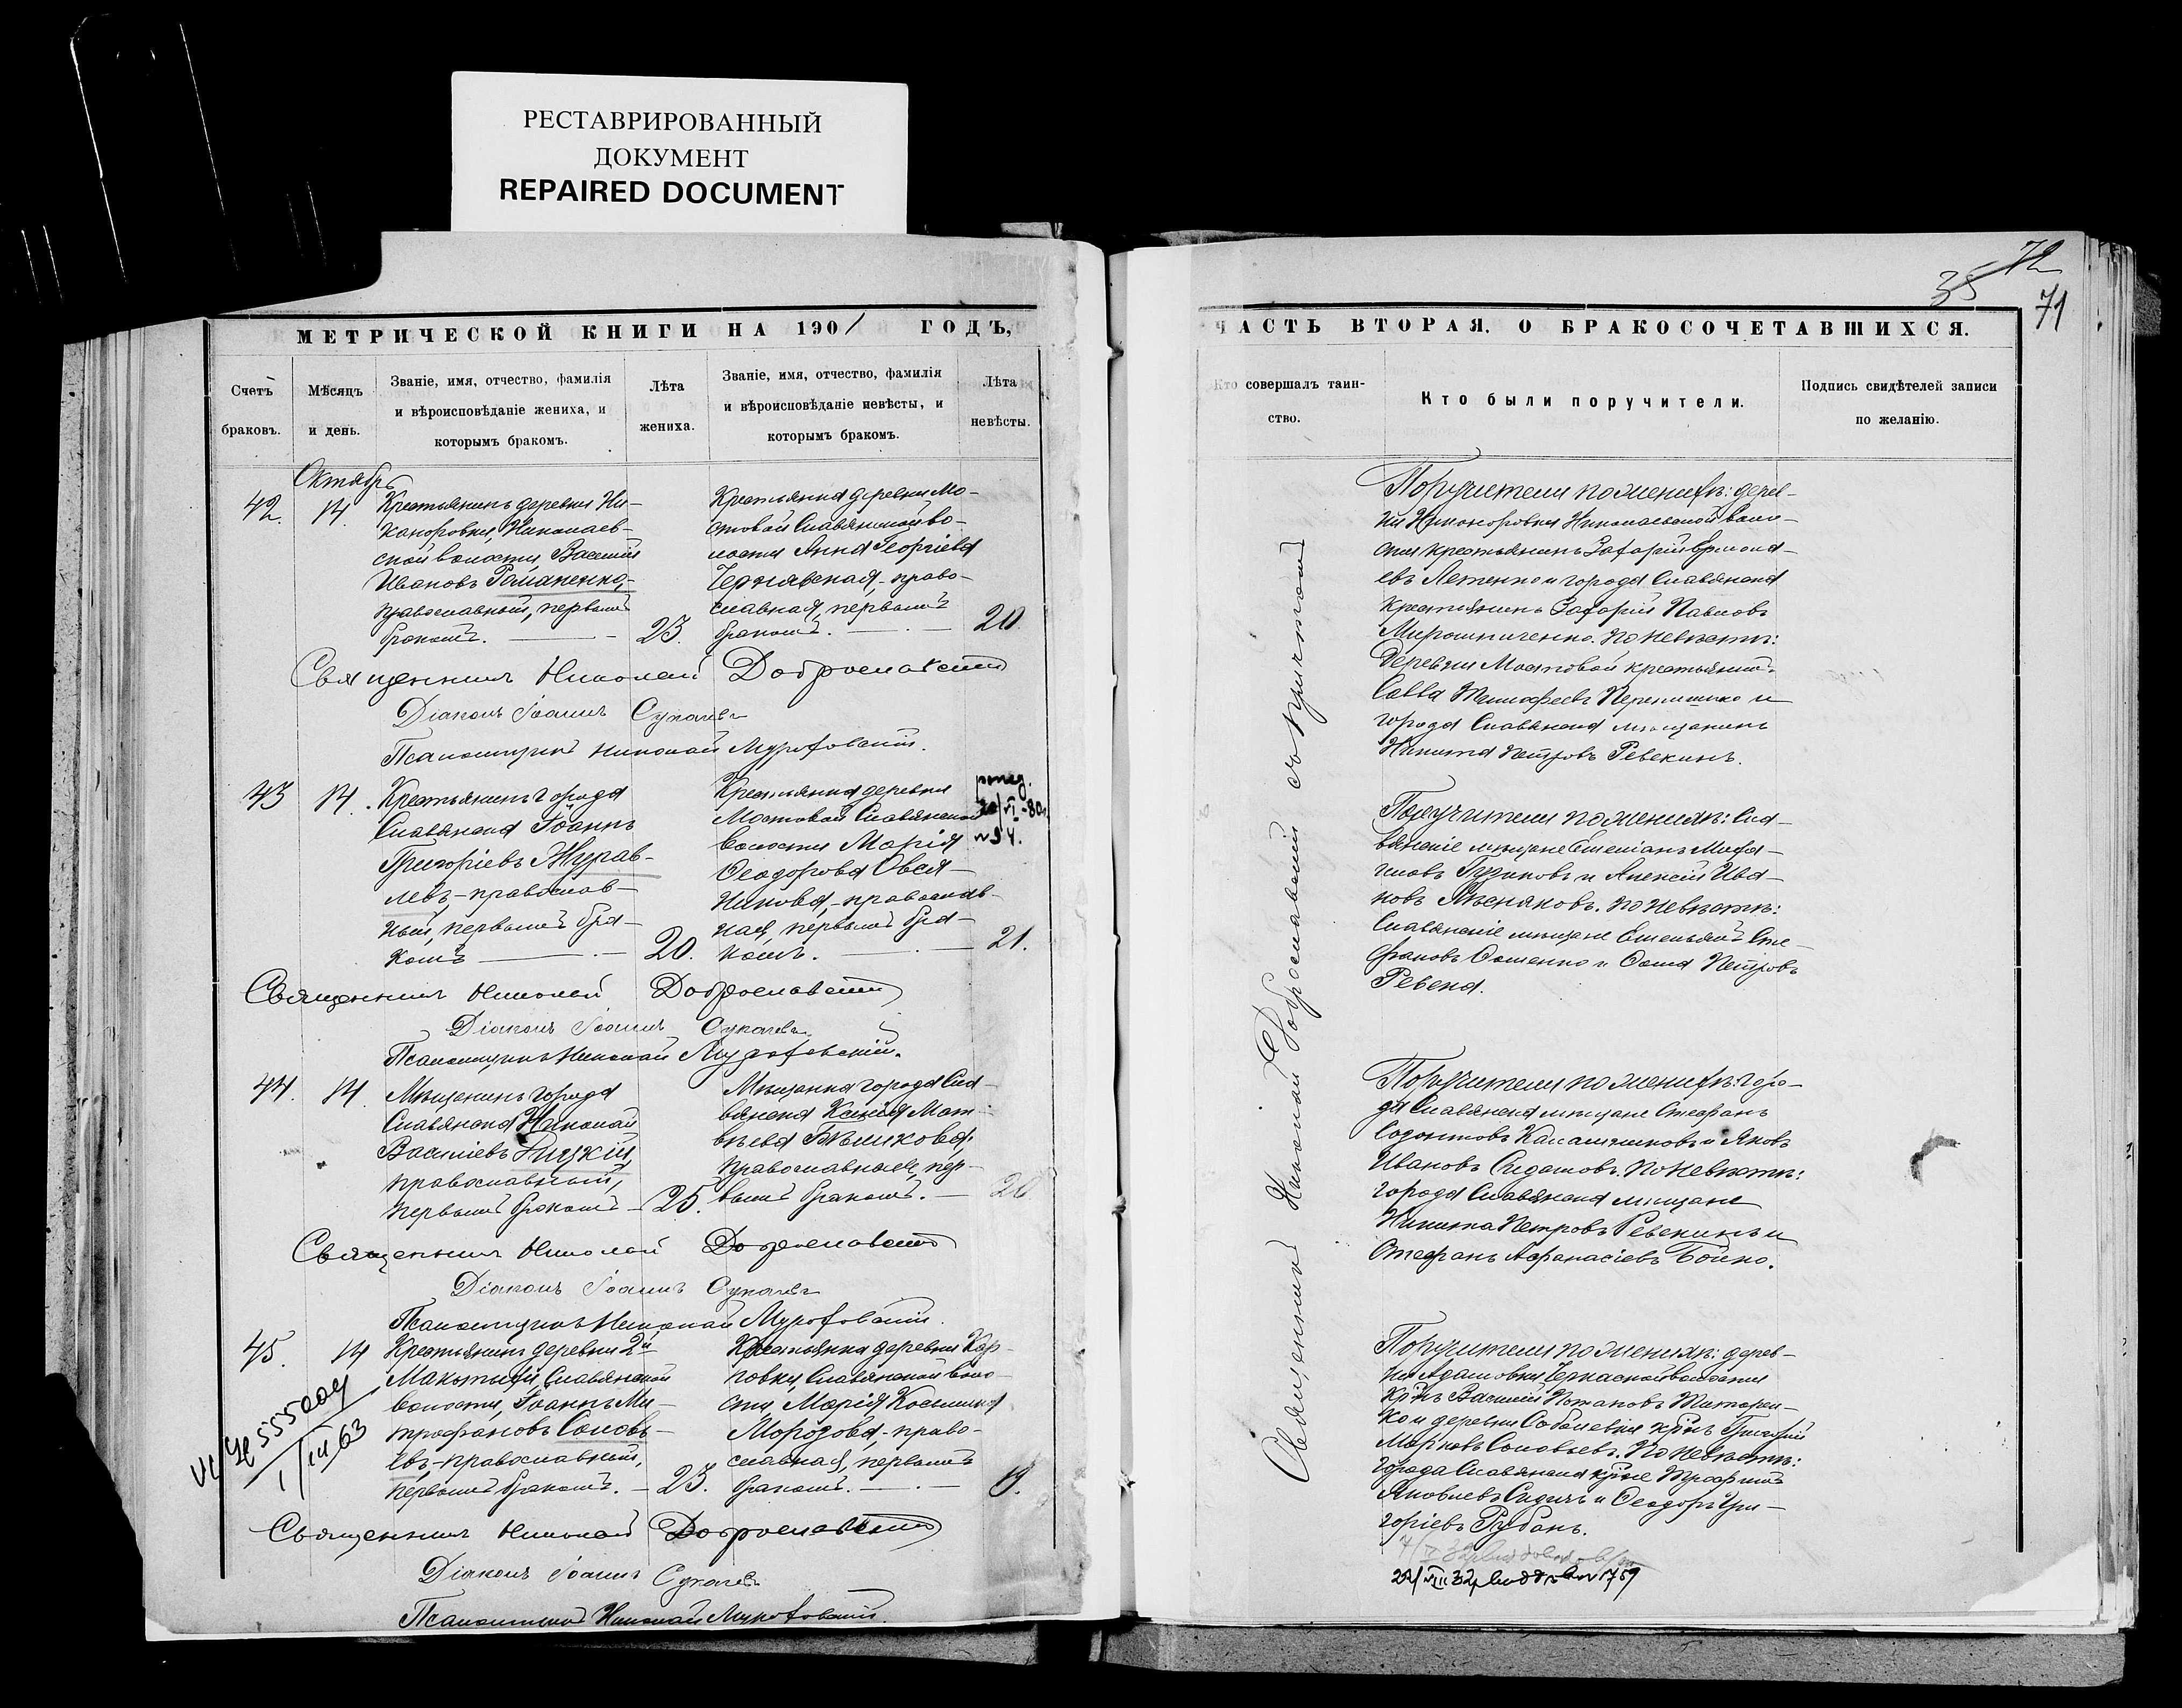 РЕСТАВРИРОВАННЫЙ
ДОКУМЕНТ
REPAIRED DOCUMENT
МЕТРИЧЕСКОЙ КНИГИ НА 1901 ГОДЪ,
Счетъ браковъ.
Мѣсяцъ и день.
Званіе, имя, отчество, фамилія
и вѣроисповѣданіе жениха, и
которымъ бракомъ.
Лѣта жениха.
Званіе, имя, отчество, фамилія
и вѣроисповѣданіе невѣсты, и
которымъ бракомъ.
Лѣта невѣсты.
Октябрь
42. 14.
Крестьянинъ деревни Ни-
каноровки, Николаев-
ской волости, Василій
Ивановъ Романенко,-
православный, первымъ
бракомъ. 23.
Крестьянка деревни Мо-
стовой Славянской во-
лости Анна Георгіева
Чернявская,- право-
славная, первымъ
бракомъ. 20
Священникъ Николай Доброславскій
Діаконъ Іоаннъ Сукачевъ
Псаломщикъ Николай
43 14.
Крестьянинъ города
Славянска Іоаннъ
Григоріевъ Журав-
левъ,- православ-
ный, первымъ бра-
комъ 20.
Крестьянка деревни
Мостовой Славянской
волости Марія
Ѳеодорова Овся-
никова,- православ-
ная, первымъ бра-
комъ. 21.
Священникъ Николай Доброславскій
Діаконъ Іоаннъ Сукачевъ
Псаломщикъ Николай
44. 14.
Мѣщанинъ города
Славянска Николай
Василіевъ
православный,
первымъ бракомъ 25.
Мѣщанка города Сла-
вянска Ксенія Мат-
вѣева Бѣликова,
православная, пер-
вымъ бракомъ. 20
Священникъ Николай Доброславскій
Діаконъ Іоаннъ Сукачевъ
Псаломщикъ Николай
45. 14
Крестьянинъ деревни 2й
Макатихи, Славянской
волости, Іоаннъ Ми-
трофановъ Соловь-
евъ,- православный,
первымъ бракомъ. 23.
Крестьянка деревни Кар-
повки, Славянской воло-
сти, Марія Косьмина
Морозова,- право-
славная, первымъ
бракомъ. 19.
Священникъ Николай Доброславскій
Діаконъ Іоаннъ Сукачевъ
Псаломщикъ Николай
72
35
71
ЧАСТЬ ВТОРАЯ. О БРАКОСОЧЕТАВШИХСЯ.
Кто совершалъ таин-
ство.
Кто были поручители.
Подпись свидѣтелей записи
по желанію.
Священникъ Николай Доброславскій съ причтомъ
Поручители по женихѣ: дерев-
ни Никаноровки Николаевской воло-
сти крестьянинъ Захарій
города Славянска
крестьянинъ Захарій Павловъ
Мирошниченко. По невѣстѣ:
деревни Мостовой крестьянинъ
Савва и
города Славянска мѣщанинъ
Никита Петровъ Ревекинъ.
Поручители по женихѣ: Сла-
вянскіе мѣщане
и Алексій Ива-
новъ По невѣстѣ:
Славянскіе мѣщане Емельянъ Сте-
фановъ и Ѳома Петровъ
Ревека.
Поручители по женихѣ: горо-
да Славянска мѣщане Стефанъ
Калашниковъ и Яковъ
Ивановъ По невѣстѣ:
города Славянска мѣщане
Никита Петровъ Ревекинъ и
Стефанъ Афанасіевъ Бойко.
Поручители по женихѣ: дерев-
ни Адамовки Черкасской волости
кр̃нъ Василій Потаповъ Титарен-
ко и деревни Соболевки кр̃нъ Григорій
Марковъ Соловьевъ. По невѣстѣ:
города Славянска кр̃не Трофимъ
Яковлевъ и Ѳеодоръ Гри-
горіевъ Рубанъ.